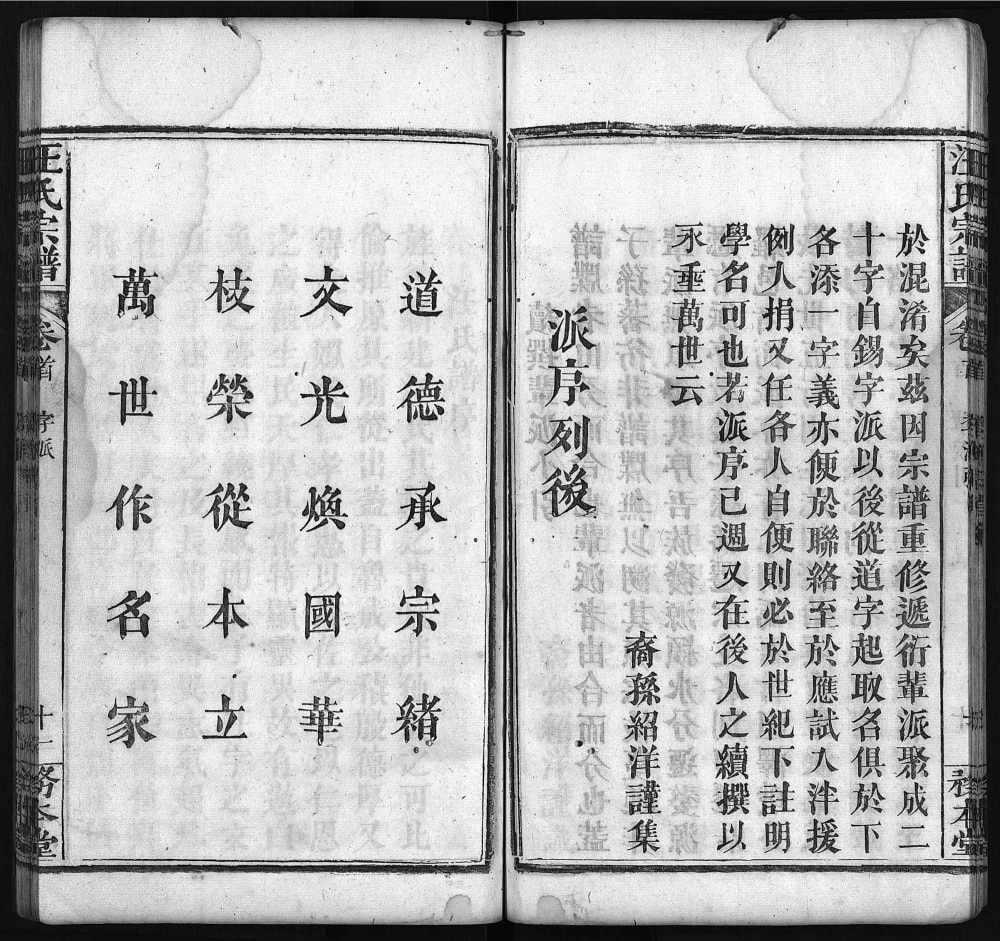 於混淆矣茲因宗譜重修遞衍輩派聚成二
十字自錫字派以後從道字起取名俱於下
各添一字義亦便於聯絡至於應試入泮援
例入捐又任各人自便則必於世紀下註明
學名可也若派序已週又在後人之續撰以
永垂萬世云
裔孫紹洋謹集
派序列後
道德承宗緒
文光煥國華
枝榮從本立
萬世作名家
汪氏宗譜
卷首
字派
十一
務本堂